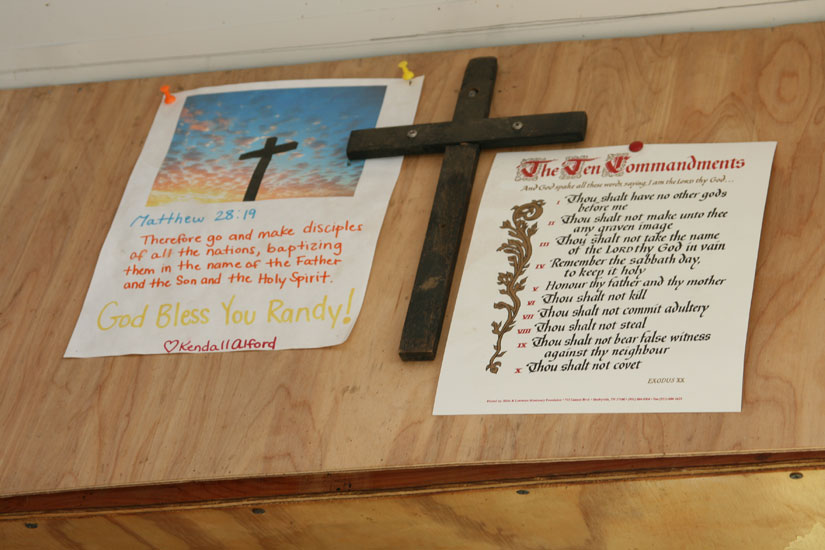 Matthew 28:19
Therefore go and make disciples
of all the nations, baptizing
them in the name of the Father
and the Son and the Holy Spirit.
God Bless You Randy!
♡Kendall Alford
The Ten Commandments
And God spake all these words, saying, I am the LORD thy God...
I Thou shalt have no other gods
before me
II Thou shalt not make unto thee
any graven image
III Thou shalt not take the name
of the LORD thy God in vain
IV Remember the sabbath day,
to keep it holy
V Honour thy father and thy mother
VI Thou shalt not kill
VII Thou shalt not commit adultery
VIII Thou shalt not steal
IX Thou shalt not bear false witness
against thy neighbour
X Thou shalt not covet
EXODUS XX